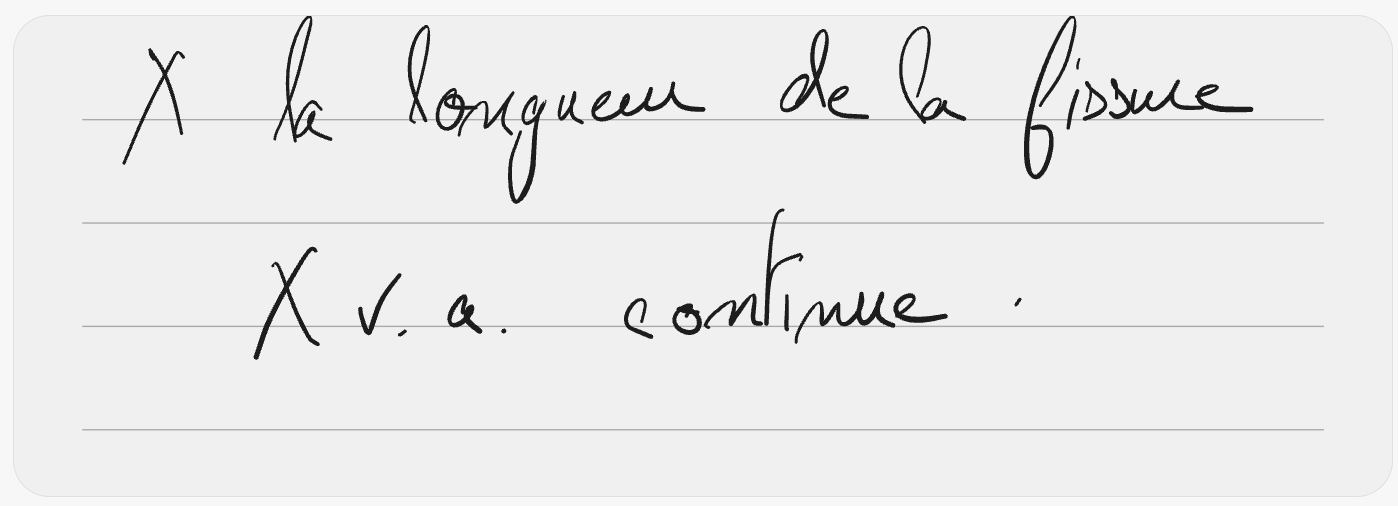 X la longueur de la fissure
X v. a. continue.